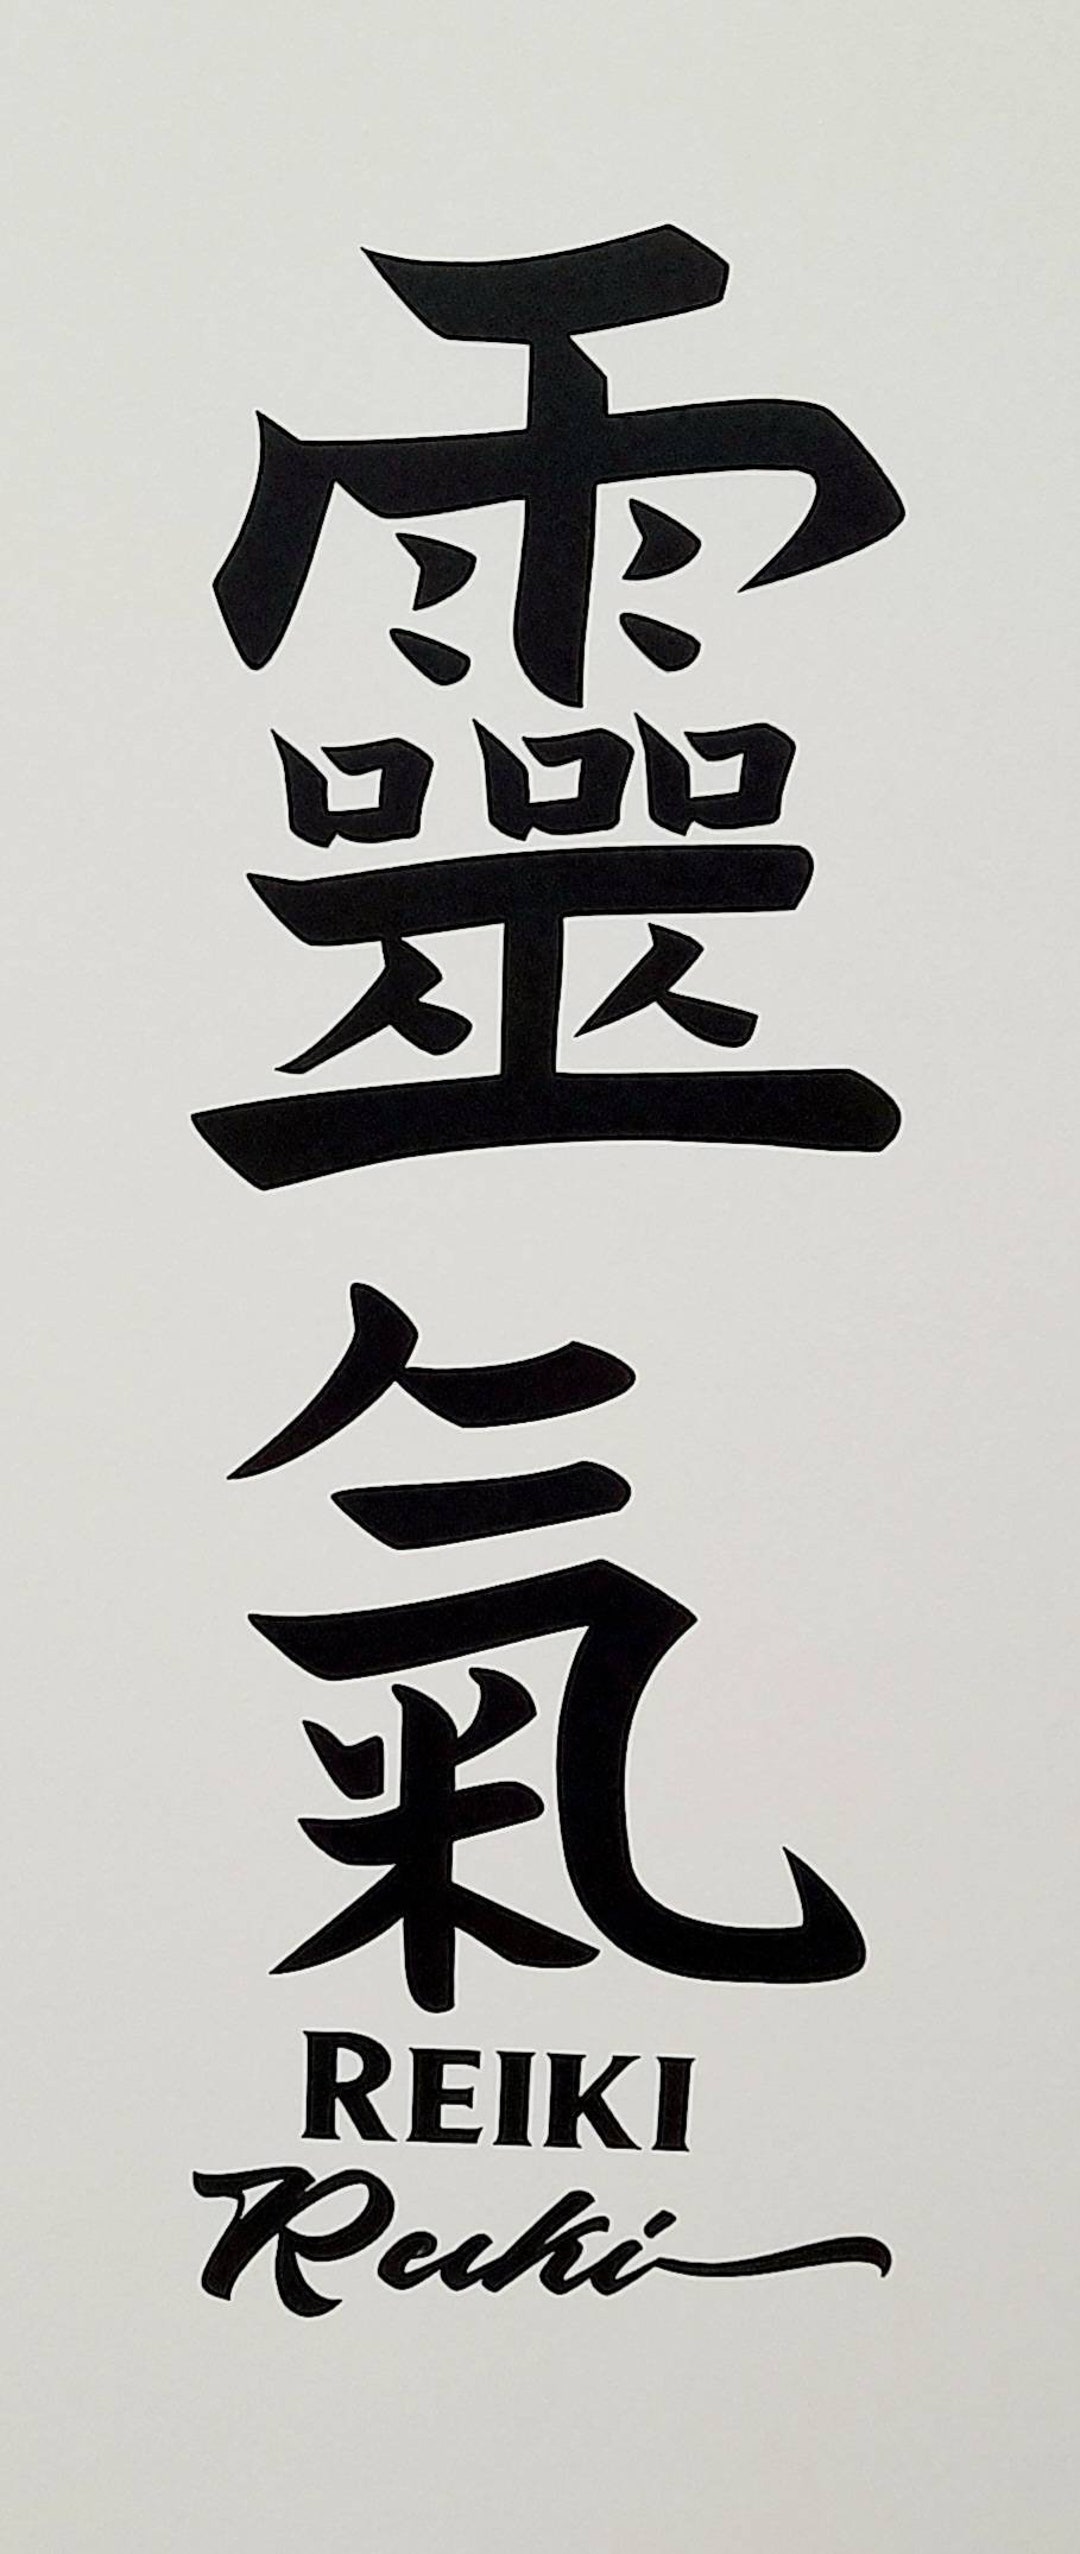 靈
氣
REIKI
Reiki